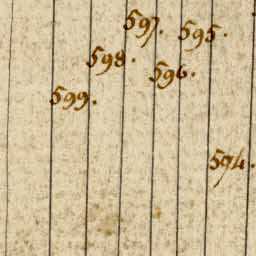 597.
595.
598.
596.
599.
594.